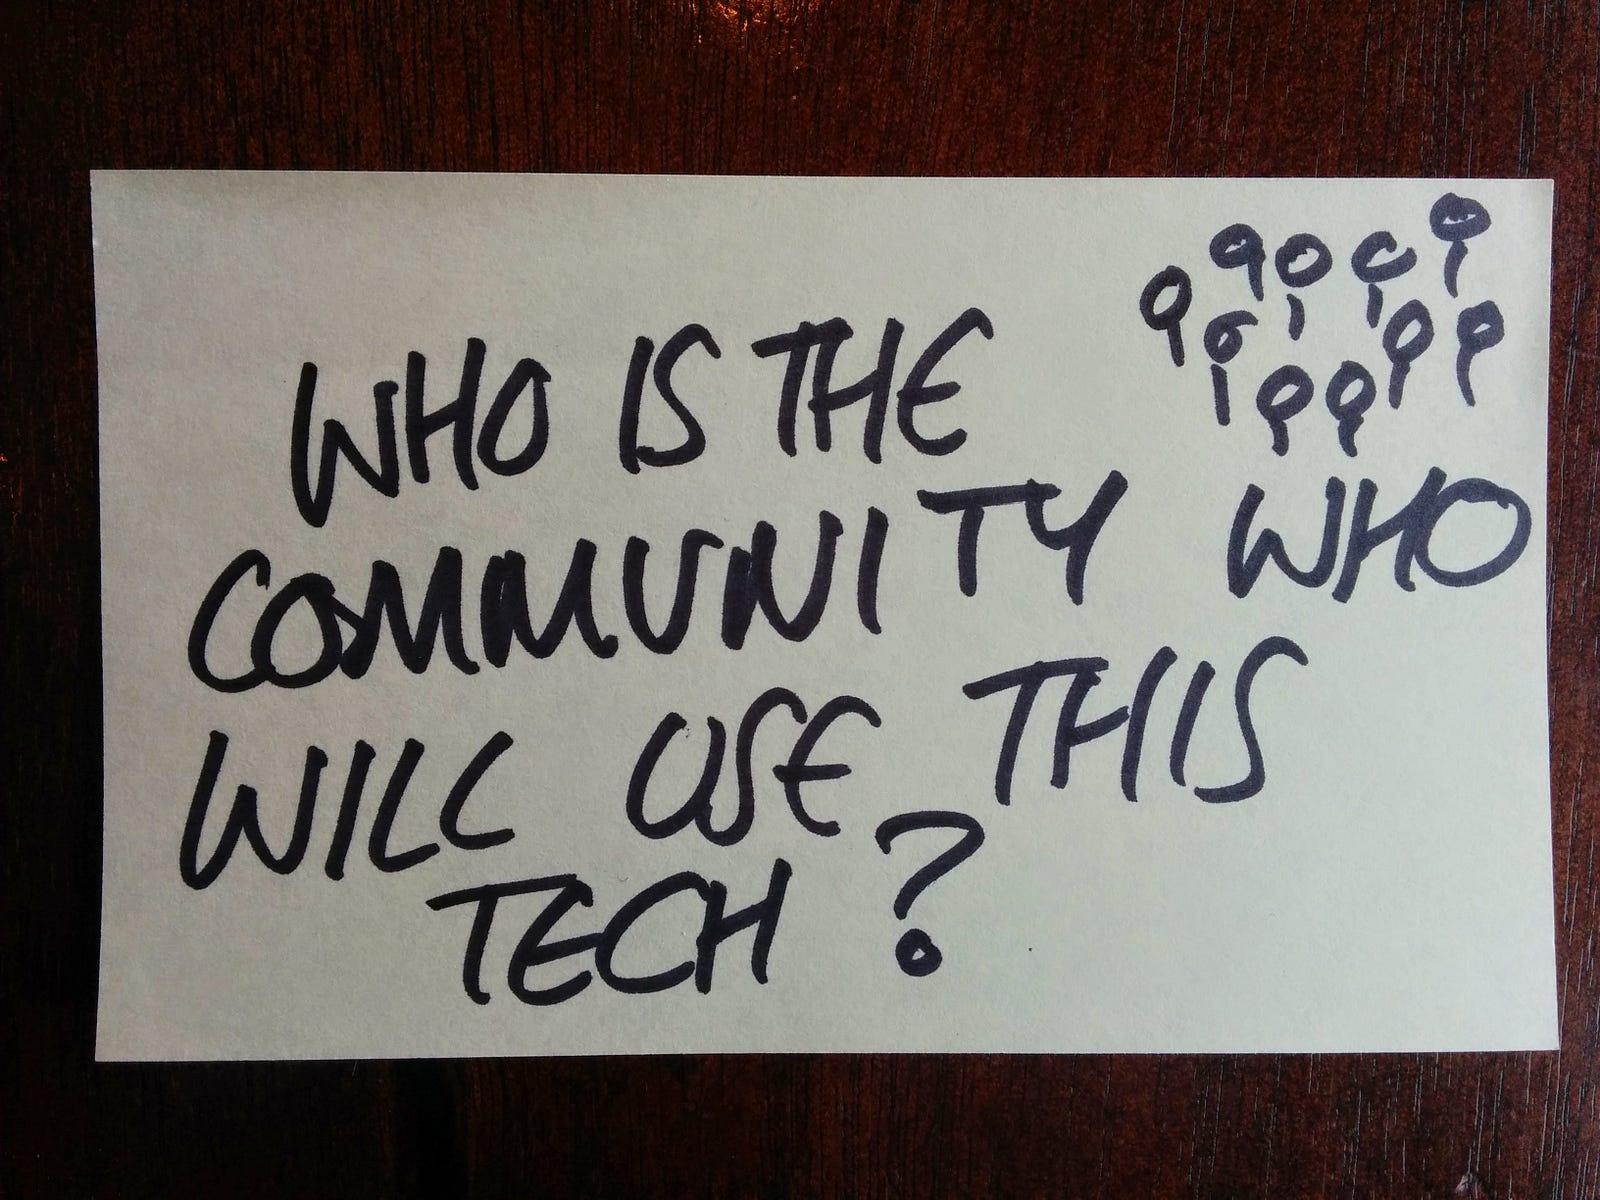 WHO IS THE
COMMUNITY WHO
WILL USE THIS
TECH?